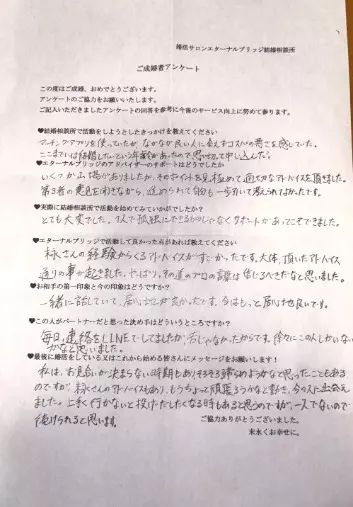 婚活サロンエターナルブリッジ結婚相談所
ご成婚者アンケート
この度はご成婚、おめでとうございます。
アンケートのご協力をお願いいたします。
ご記入いただきましたアンケートの回答を参考に今後のサービス向上に努めて参ります。
♥結婚相談所で活動をしようとしたきっかけを教えてください
マッチングアプリを使っていたが、なかなか良い人に会えずコスパの悪さを感じていた。
ここまでには結婚したいという年齢があったので思い切って申し込んだ。
♥エターナルブリッジのアドバイザーのサポートはどうでしたか
いくつか山場がありましたが、そのポイントを見極めて適切なアドバイスを頂きました。
第3者の意見を聞きながら、進められて物も一歩引いて考えられてよかったです。
♥実際に結婚相談所で活動を始めてみていかがでしたか？
とても大変でした。1人で孤独にできるものじゃなくサポートがあってこそできました。
♥エターナルブリッジで活動して良かった点があれば教えてください
林さんの経験からくるアドバイスがすごかったです。大体、頂いたアドバイス
通りの事が起きました。やっぱり、その道のプロの言う事は信じるべきだなと思いました。
♥お相手の第一印象と今の印象はどうですか？
一緒に話していて、居心地が良かったです。今はもっと居心地も良いです。
♥この人がパートナーだと思った決め手はどういうところですか？
毎日、連絡をLINEでしてましたが、苦じゃなかったからです。徐々にこの人しかいない
かなと思いました。
♥最後に婚活をしている又はこれから始める皆さんにメッセージをお願いします！
私は、お見合いが決まらない時期もありそろそろ諦めようかなと思ったこともある
のですが、林さんのアドバイスもあり、もうちょっと頑張ろうかなと動き、今の人に出会え
ました。上手く行かないと投げだしたくなる時もあると思うのですが、一人でないので
続けられると思います。
ご協力ありがとうございました。
末永くお幸せに。